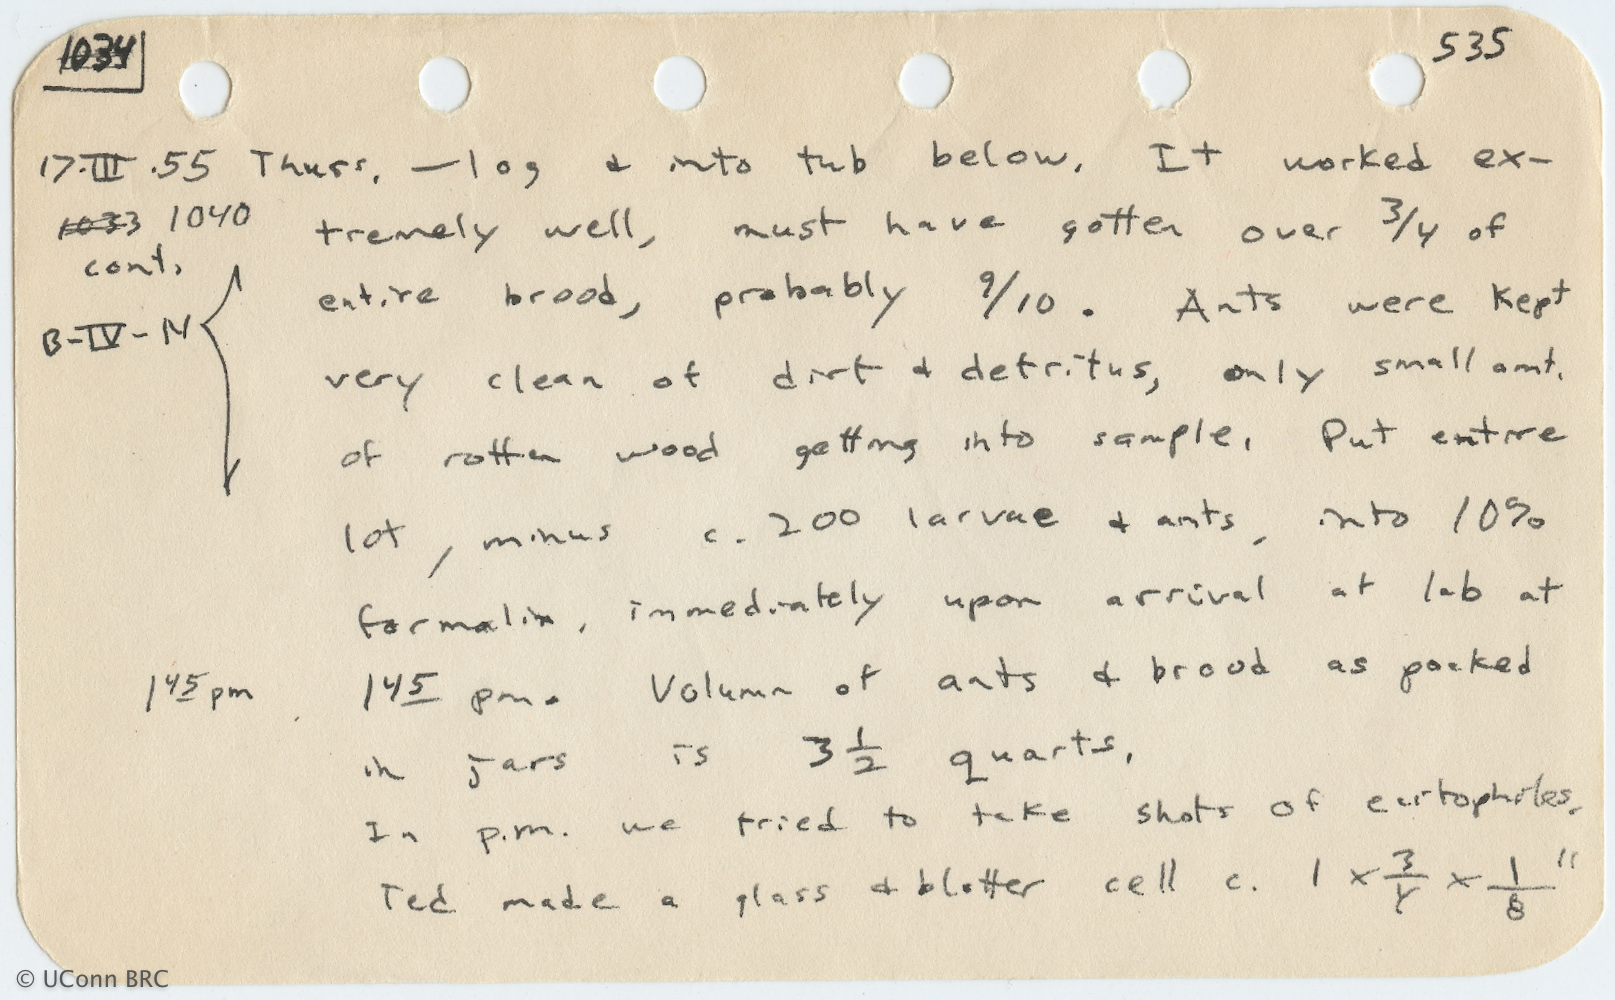 1034
535
17.III.55 Thurs. — log & into tub below. It worked ex-
1033 1040 tremely well, must have gotten over 3/4 of
cont.
B-IV-N entire brood, probably 9/10. Ants were kept
very clean of dirt & detritus, only small amt.
of rotten wood getting into sample. Put entire
lot, minus c. 200 larvae & ants, into 10%
formalin, immediately upon arrival at lab at
1 45 pm 1 45 pm. Volumn of ants & brood as packed
in jars is 3 1/2 quarts.
In p.m. we tried to take shots of ecitophiles.
Ted made a glass & blotter cell c. 1 x 3/4 x 1/8"
© UConn BRC